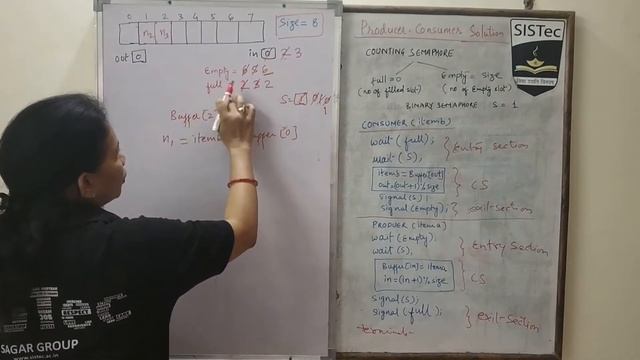 0 1 2 3 4 5 6 7
n2 n3
Size = 8
out 0
in 0 2 3
Empty = 6 5 6
full = 2 3 2
S = 1 0 1 0 1
Buffer [2
n1 = item Buffer [0]
Producer-Consumer Solution
COUNTING SEMAPHORE
full = 0
(no of filled slot)
Empty = size
(no of Empty slot)
BINARY SEMAPHORE S = 1
CONSUMER (itemb)
wait (full);
wait (S);
Entry section
itemb = Buffer[out]
out=(out+1)%size
CS
signal(S);
signal(Empty);
exit-section
PRODUCER (itema)
wait (Empty);
wait (S);
Entry section
Buffer[in] = itema
in = (in+1)%size
CS
signal(S);
signal(full);
exit-section
SISTec
RESPECT
www.sistec.ac.in
SAGAR GROUP